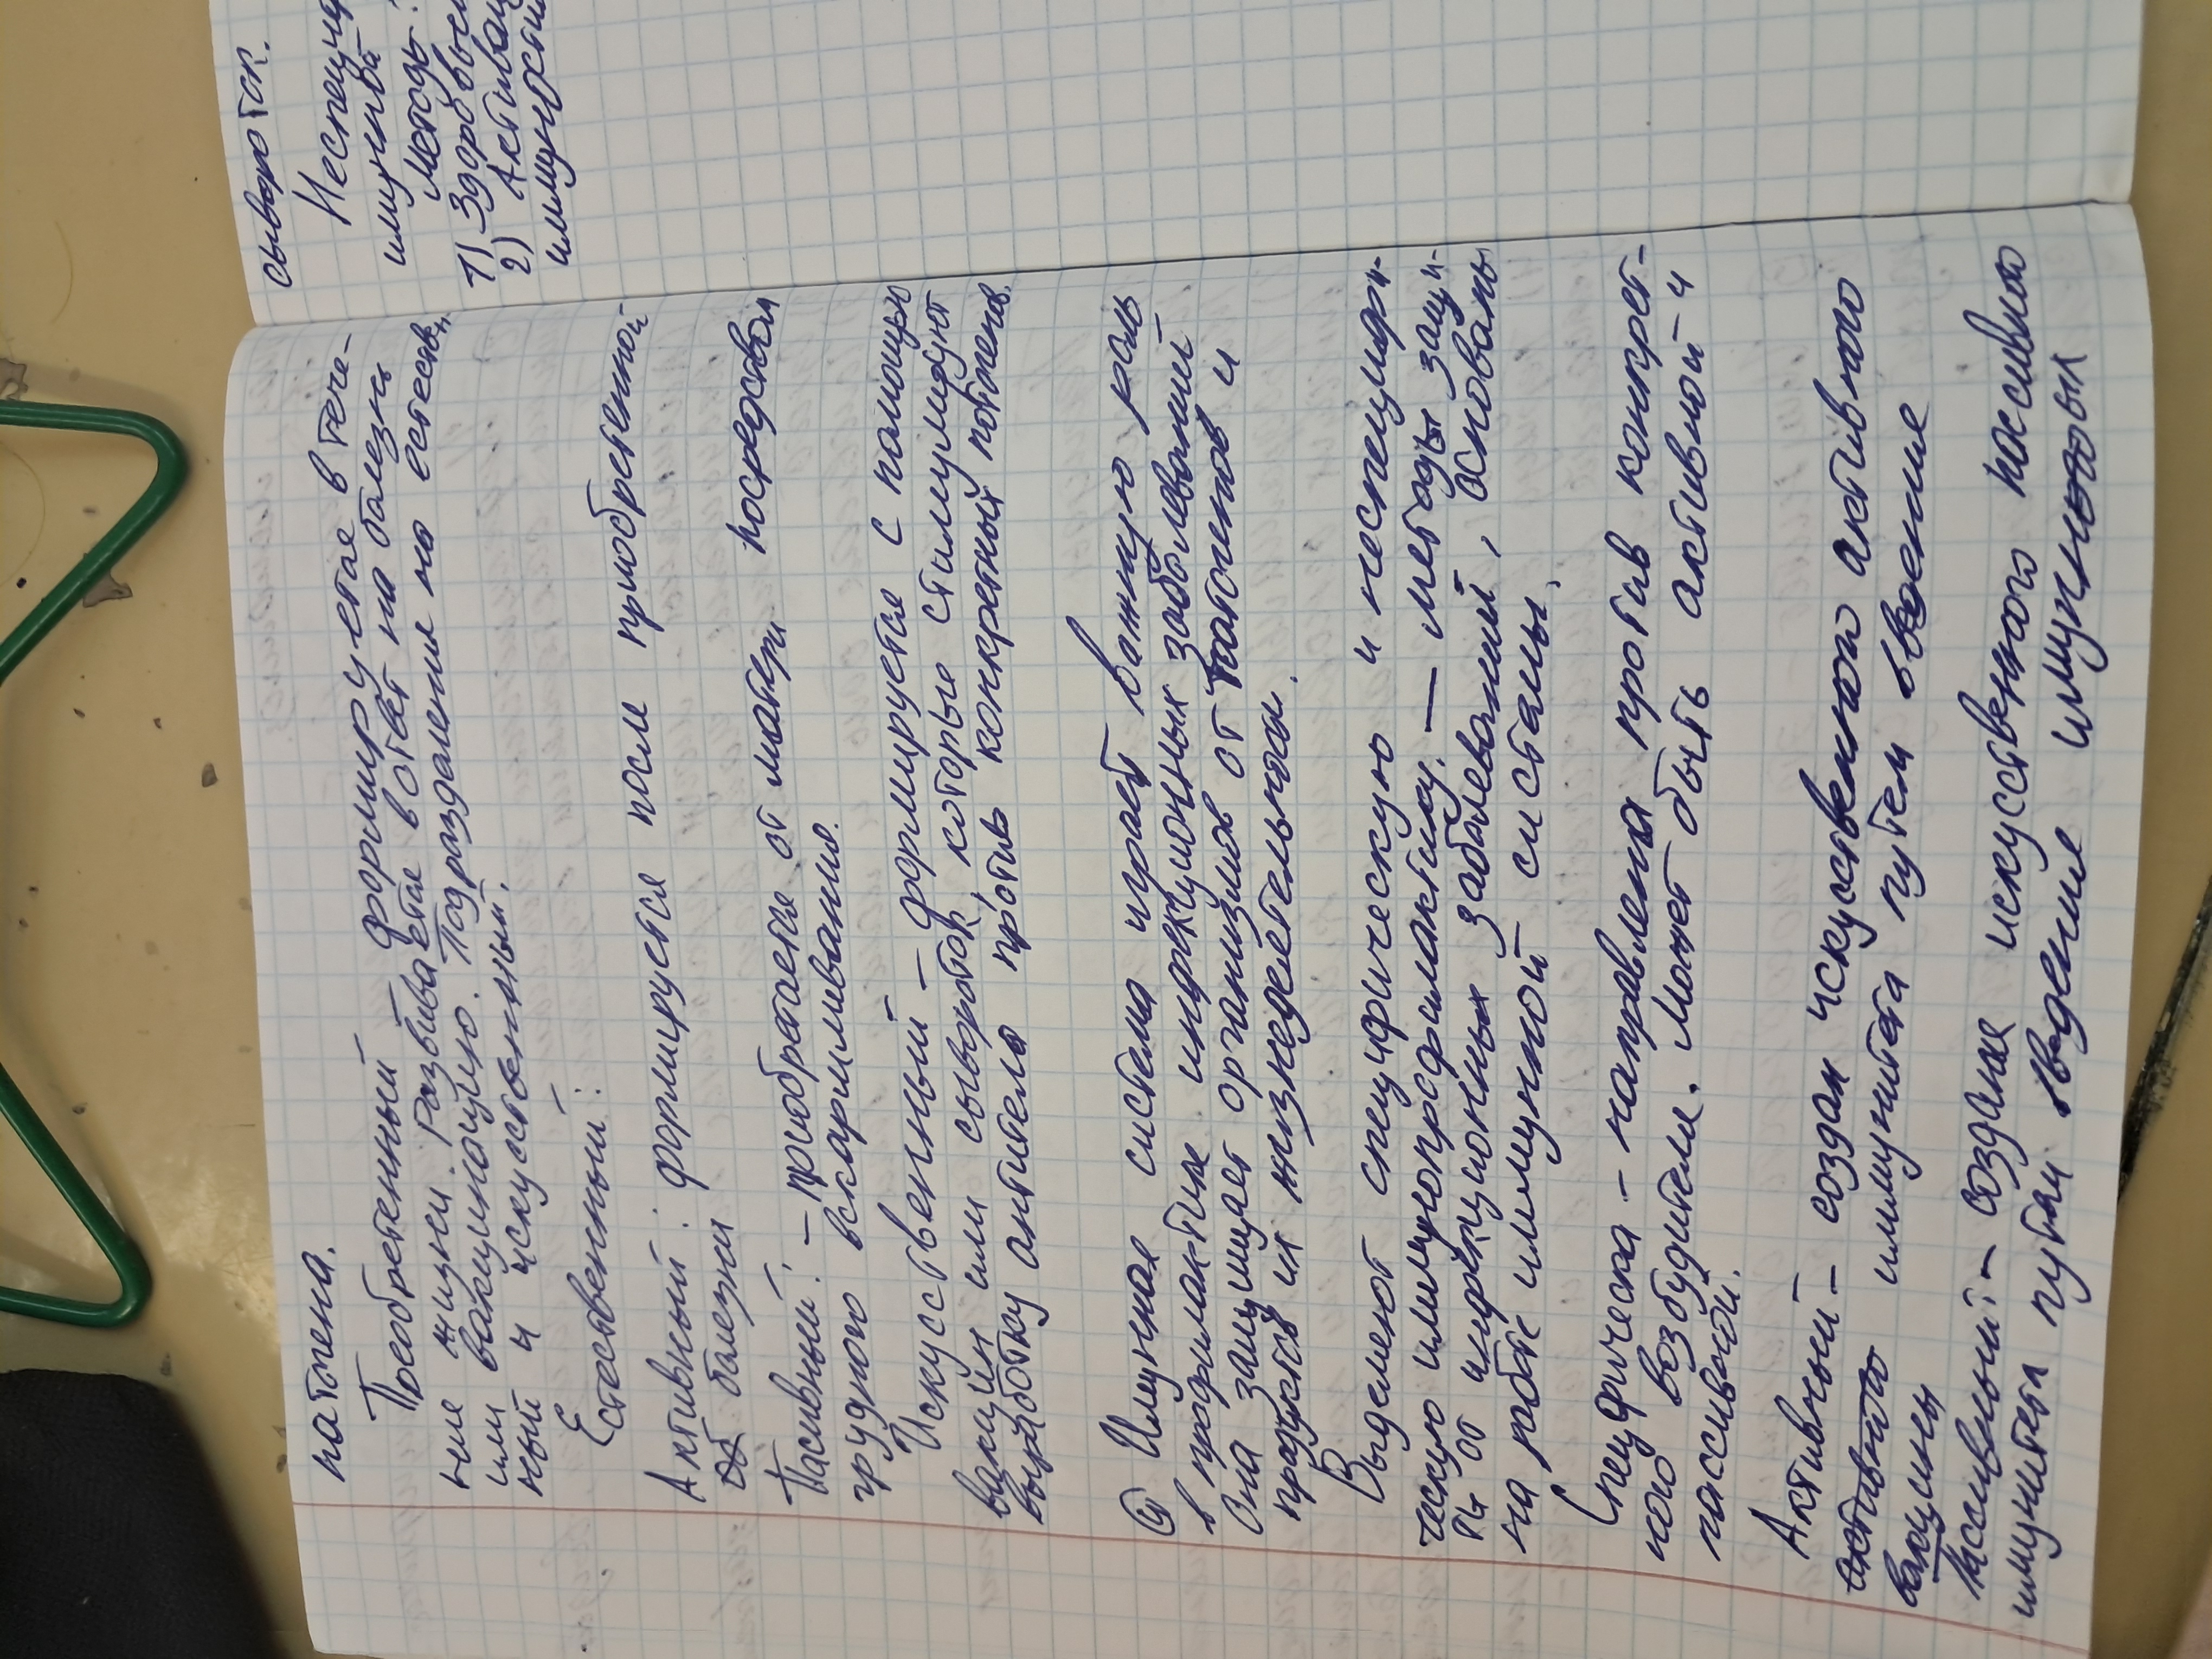 патогена.
Преобретенный формируется в тече-
ние жизни. Развивается в ответ на болезнь
или вакцинацию. Подразделение на естествен
ный и искуственный.
Естественный:
Активный: формируется после приобретенной
болезни
Пасивный: - приобретается от матери посредством
грудного вскармливания.
Искусственный - формируется с помощью
вакцин или сывороток, которые стимулируют
выработку антител против конкретный патогенов.
④ Имунная система играет важную роль
в профилактике инфекционных заболеваний
Она защищает организмов от патогенов и
продуктов их жизнедеятельности.
Выделяют специфическую и неспецифи-
ческую иммунопрофилактику. — методы защи-
ты от инфекционных заболеваний, основаны
на работе иммунной системы.
Специфическа - направлена против конкрет-
ного возбудителя. Может быть активной и
пассивной.
Активный - создан искусственного активного
активного иммунитета путем введение
вакцины
Пассивный: - создание искусственного пасивного
иммунитета путём введение имунновых
сывороток.
Неспециф
имунна
Методы:
1) Здоровье
2) Активац
иммуност